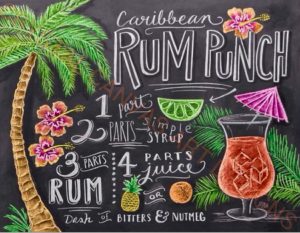 Caribbean
RUM PUNCH
1 part
2 PARTS simple SYRUP
3 PARTS RUM
4 PARTS juice
OR
Dash OF BITTERS & NUTMEG